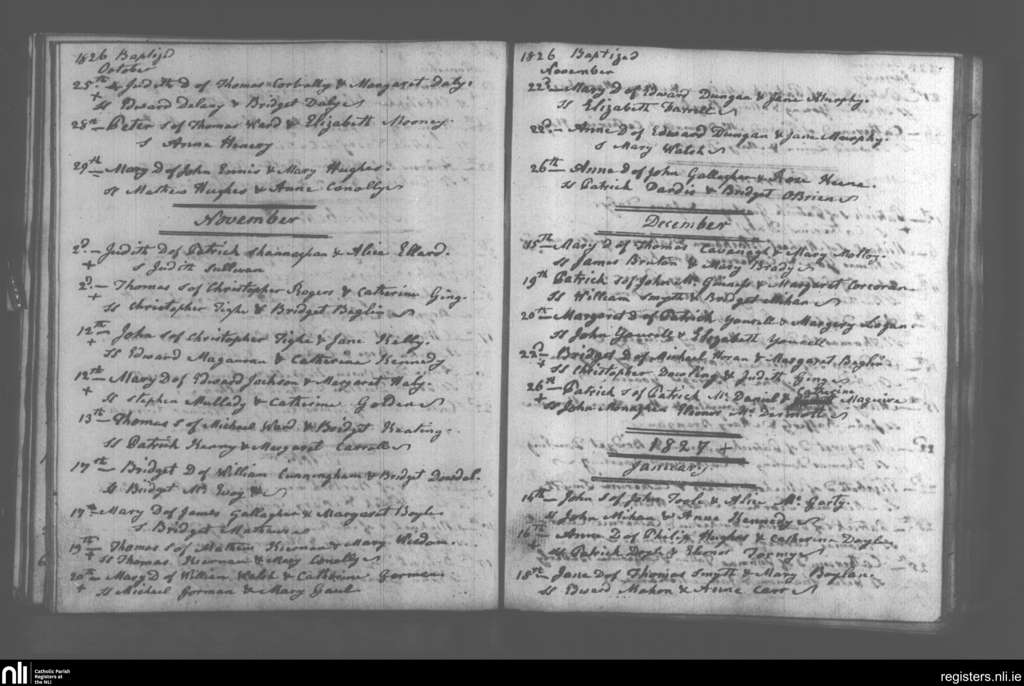 1826 Baptized
October
25th Judith D of Thomas Corbally & Margaret Daly.
+ Ss Edward Delany & Bridget Daly
28th Peter S of Thomas Ward & Elizabeth Mooney
S Anne Henery
29th Mary D of John Ennis & Mary Hughes.
Ss Mathew Hughes & Anne Conolly
November
2d Judith D of Patrick Shannaghan & Alice Ellard.
+ S Judith Sullivan
2d Thomas S of Christopher Rogers & Catherine Ging.
+ Ss Christopher Tighe & Bridget Beglin
12th John S of Christopher Tighe & Jane Kelly.
+ Ss Edward Magauran & Catherine Kennedy
12th Mary D of Edward Jackson & Margaret Haly.
+ Ss Stephen Mullady & Catherine Golden
13th Thomas S of Michael Ward & Bridget Keating.
Ss Patrick Henry & Margaret Carroll
17th Bridget D of William Cunningham & Bridget Dowdal.
Ss Bridget Mc Evoy &
17th Mary D of James Gallagher & Margaret Boyle
S Bridget Mathews
19th Thomas S of Mathew Kiernan & Mary
+ Ss Thomas Kiernan & Mary Conolly
20th Mary D of William Walsh & Catherine Gorman
+ Ss Michael Gorman & Mary Gaul
1826 Baptized
November
22d Mary D of Edward Dungan & Jane Murphy.
Ss Elizabeth Darrell
22d Anne D of Edward Dungan & Jane Murphy.
S Mary Walsh
26th Anne D of John Gallagher & Rose Keene.
Ss Patrick Dardis & Bridget OBrien
December
15th Mary D of Thomas Cavanagh & Mary Molloy.
Ss James Bruton & Mary Brady
19th Patrick S of John Mc Guiness & Margaret Corcoran
Ss William Smyth & Bridget Mihan
20th Margaret D of Patrick Yourell & Margery Logan
Ss John Yourell & Elizabeth Yourell
22d Bridget D of Michael Horan & Margaret Beglin
+ Ss Christopher Dowling & Judith Ging
26th Patrick S of Patrick Mc Daniel & Catherine Maguire
+ Ss John Monaghan Elenor Mc Dermott
1827 +
January
16th John S of John Toole & Alice Mc Garty
Ss John Mihan & Anne Kennedy
16th Anne D of Philip Hughes & Catherine Doyle
Ss Patrick Doyle & Elenor Tormy
18th Jane D of Thomas Smyth & Mary Boylan
Ss Edward Mahon & Anne Carr
nli
Catholic Parish
Registers at
the NLI
registers.nli.ie